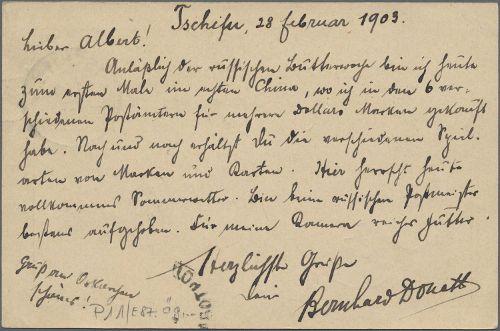 Tschifu, 28 Februar 1903.
Lieber Albert!
Anläßlich der russischen Butterwoche bin ich heute
zum ersten Male im echten China, wo ich in den 6 ver-
schiedenen Postämtern für mehrere Dollars Marken gekauft
habe. Nach und nach erhältst Du die verschiedenen Spiel-
arten von Marken und Karten. Hier herrscht heute
vollkommenes Sommerwetter. Bin beim russischen Postmeister
bestens aufgehoben. Für meine Kamera reichs Futter.
Herzlichste Grüße
Dein Bernhard Donath
Gruß an
schöns!
P/1/E87.